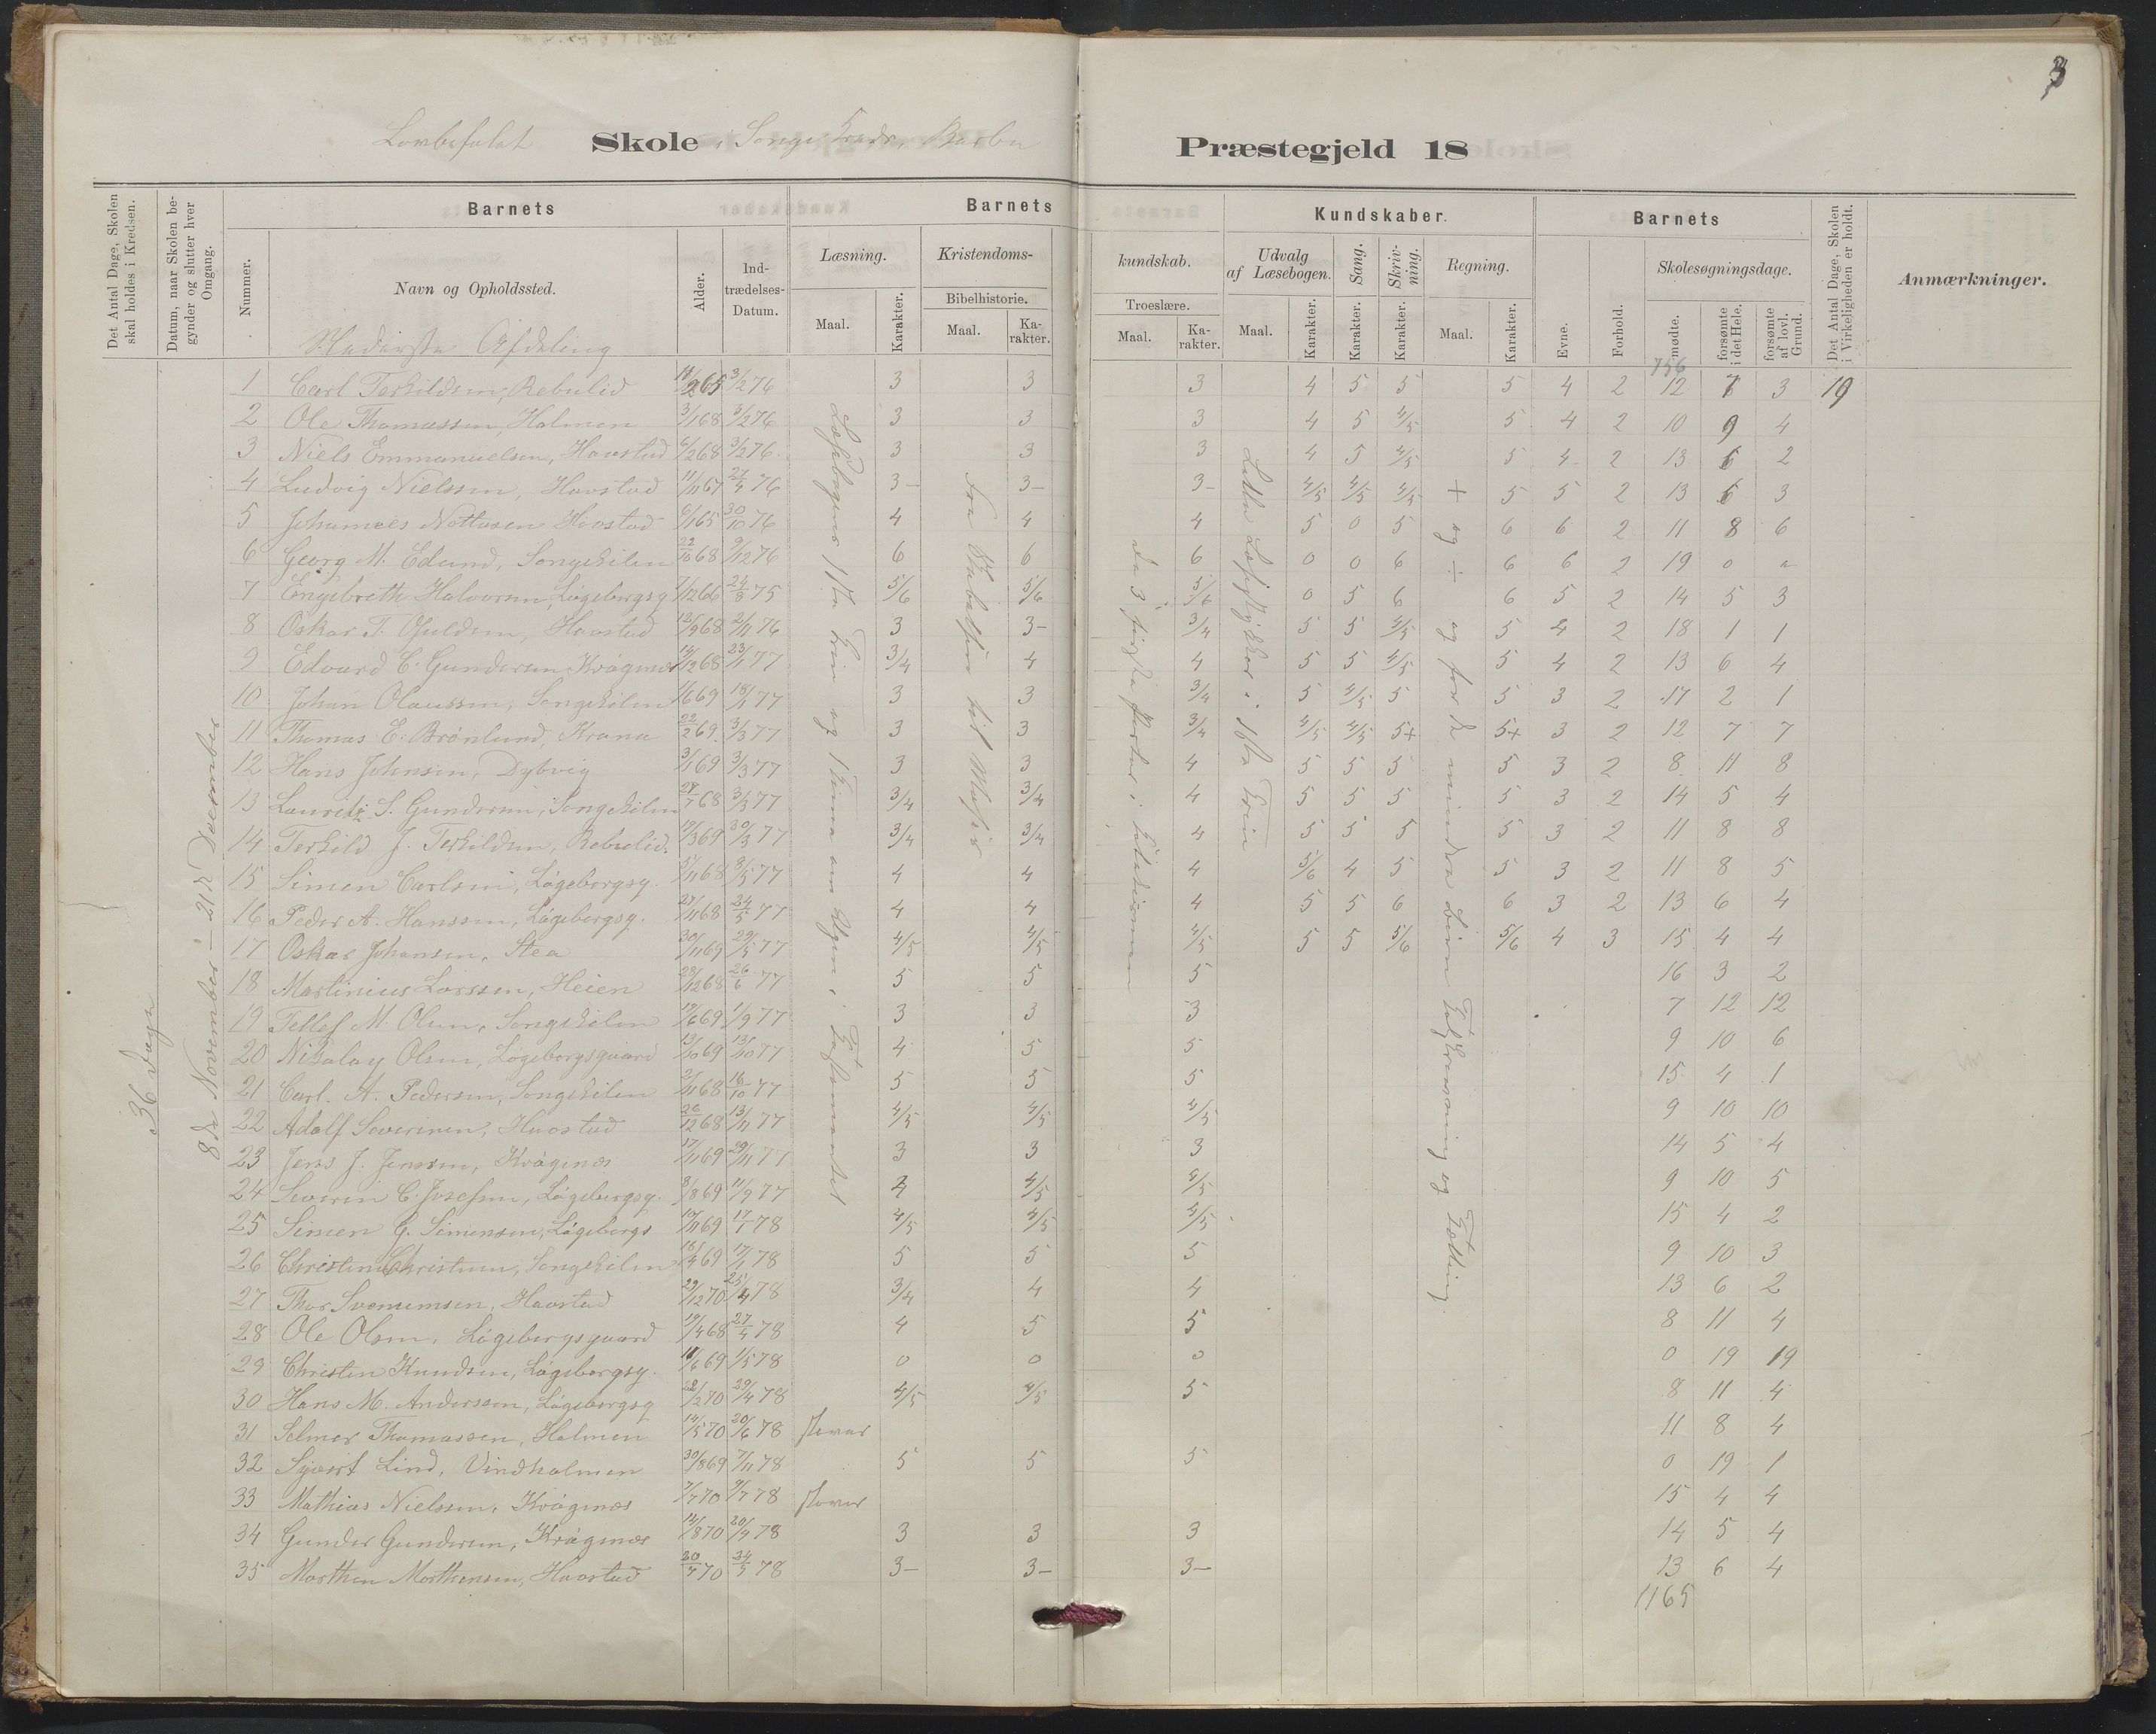 3
Skole i Songe Kreds, Barbu Præstegjeld 18
Det Antal Dage, Skolen skal holdes i Kredsen.
Datum, naar Skolen begynder og slutter hver Omgang.
Barnets
Nummer.
Navn og Opholdssted.
Alder.
Indtrædelses-Datum.
Barnets
Læsning.
Maal.
Karakter.
Kristendoms-
Bibelhistorie.
Maal.
Karakter.
kundskab.
Troeslære.
Maal.
Karakter.
Kundskaber.
Udvalg af Læsebogen.
Maal.
Karakter.
Sang.
Karakter.
Skrivning.
Karakter.
Regning.
Maal.
Karakter.
Barnets
Evne.
Forhold.
Skolesøgningsdage.
mødte.
forsømte i det Hele.
forsømte af lovl. Grund.
Det Antal Dage, Skolen i Virkeligheden er holdt.
Anmærkninger.
Nederste Afdeling
756
36 Dage
8de November – 21de December
Læsebogens 1ste Trin og
Fra Skabelsen til Moses
de 3 første Parter i Katekismen
Lette Læsestykker i 1ste Trin
+ og ÷ og for de mindre Børn Talskrivning og Tælling.
1 Carl Terkildsen, Rebulid 65 3/2 76 3 3 3 4 5 5 5 4 2 12 7 3 19
2 Ole Thomassen, Holmen 3/1 68 3/2 76 3 3 3 4 5 4/5 5 4 2 10 9 4
3 Niels Emmanuelsen, Havstad 6/2 68 3/2 76 3 3 3 4 5 4/5 5 4 2 13 6 2
4 Ludvig Nielssen, Havstad 11/11 67 27/4 76 3– 3– 3– 4/5 4/5 4/5 5 5 2 13 6 3
5 Johannes Havstad 6/1 65 30/10 76 4 4 4 5 0 5 6 6 2 11 8 6
6 Georg M. Edund, Songekilen 22/10 68 9/12 76 6 6 6 0 0 6 6 6 2 19 0
7 Engebreth Halvorsen, Løgebergsg 7/12 66 24/8 75 5/6 5/6 5/6 0 5 6 6 5 2 14 5 3
8 Oskar T. Havstad 12/9 68 2/11 76 3 3– 3/4 5 5 4/5 5 4 2 18 1 1
9 Edvard C. Gundersen Krøgenes 68 23/1 77 3/4 4 4 5 5 4/5 5 4 2 13 6 4
10 Johan Olaussen, Songekilen 1/6 69 18/1 77 3 3 3/4 5 4/5 5 5 3 2 17 2 1
11 Thomas E. Brønlund, Krana 22/2 69 3/3 77 3 3 3/4 4/5 4/5 5+ 5+ 3 2 12 7 7
12 Hans Johnsen, Dybvig 3/1 69 3/3 77 3 3 4 5 5 5 5 3 2 8 11 8
13 Lauritz S. Gundersen, Songekilen 68 3/3 77 3/4 3/4 4 5 5 5 5 3 2 14 5 4
14 Terkild J. Terkildsen, Rebulid. 19/3 69 30/3 77 3/4 3/4 4 5 5 5 5 3 2 11 8 8
15 Simen Carlsen, Løgebergsg. 68 3/5 77 4 4 4 5/6 4 5 5 3 2 11 8 5
16 Peder A. Hanssen, Løgebergsg. 27/11 68 24/5 77 4 4 4 5 5 6 6 3 2 13 6 4
17 Oskar Johansen, Stea 30/11 69 29/5 77 4/5 4/5 4/5 5 5 5/6 5/6 4 3 15 4 4
18 Martinius Larssen, Heien 28/12 68 26/6 77 5 5 5 16 3 2
19 Tellef M. Olsen, Songekilen 19/6 69 1/9 77 3 3 3 7 12 12
20 Nikolay Olsen, Løgebergsgaard 13/10 69 13/10 77 4 5 5 9 10 6
21 Carl. A. Pedersen, Songekilen 2/11 68 16/10 77 5 5 5 15 4 1
22 Adolf Severinsen, Havstad 26/12 68 13/11 77 4/5 4/5 4/5 9 10 10
23 Jens J. Jenssen, Krøgenes 17/11 69 29/11 77 3 3 3 14 5 4
24 Severin C. Josefsen, Løgebergsg. 8/8 69 11/9 77 4 4/5 4/5 9 10 5
25 Simen G. Simensen, Løgebergs 10/11 69 17/1 78 4/5 4/5 4/5 15 4 2
26 Christen Christensen, Songekilen 69 78 5 5 5 9 10 3
27 Thor Svenumsen, Havstad 29/12 70 25/4 78 3/4 4 4 13 6 2
28 Ole Olsen, Løgebergsgaard 19/4 68 27/4 78 4 5 5 8 11 4
29 Christen Knudsen, Løgebergsg. 11/6 69 1/5 78 0 0 0 0 19 19
30 Hans M. Anderssen, Løgebergsg 22/2 70 29/4 78 4/5 4/5 5 8 11 4
31 Selmer Thomassen, Holmen 14/5 70 20/6 78 staver 11 8 4
32 Sjvert Lind, Vindholmen 30/8 69 7/11 78 5 5 5 0 19 1
33 Mathias Nielssen, Krøgenes 7/7 70 9/7 78 staver 15 4 4
34 Gunder Gundersen, Krøgenes 14/8 70 20/9 78 3 3 3 14 5 4
35 Morthen Morthensen, Havstad 70 78 3– 3– 3– 13 6 4
1165